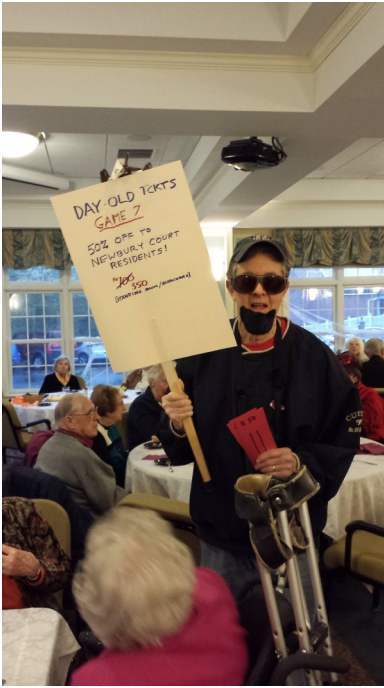 DAY-OLD TCKTS
GAME 7
50% OFF TO
NEWBURY COURT
RESIDENTS!
700 350
[STANDING ROOM/BLEACHERS]
11